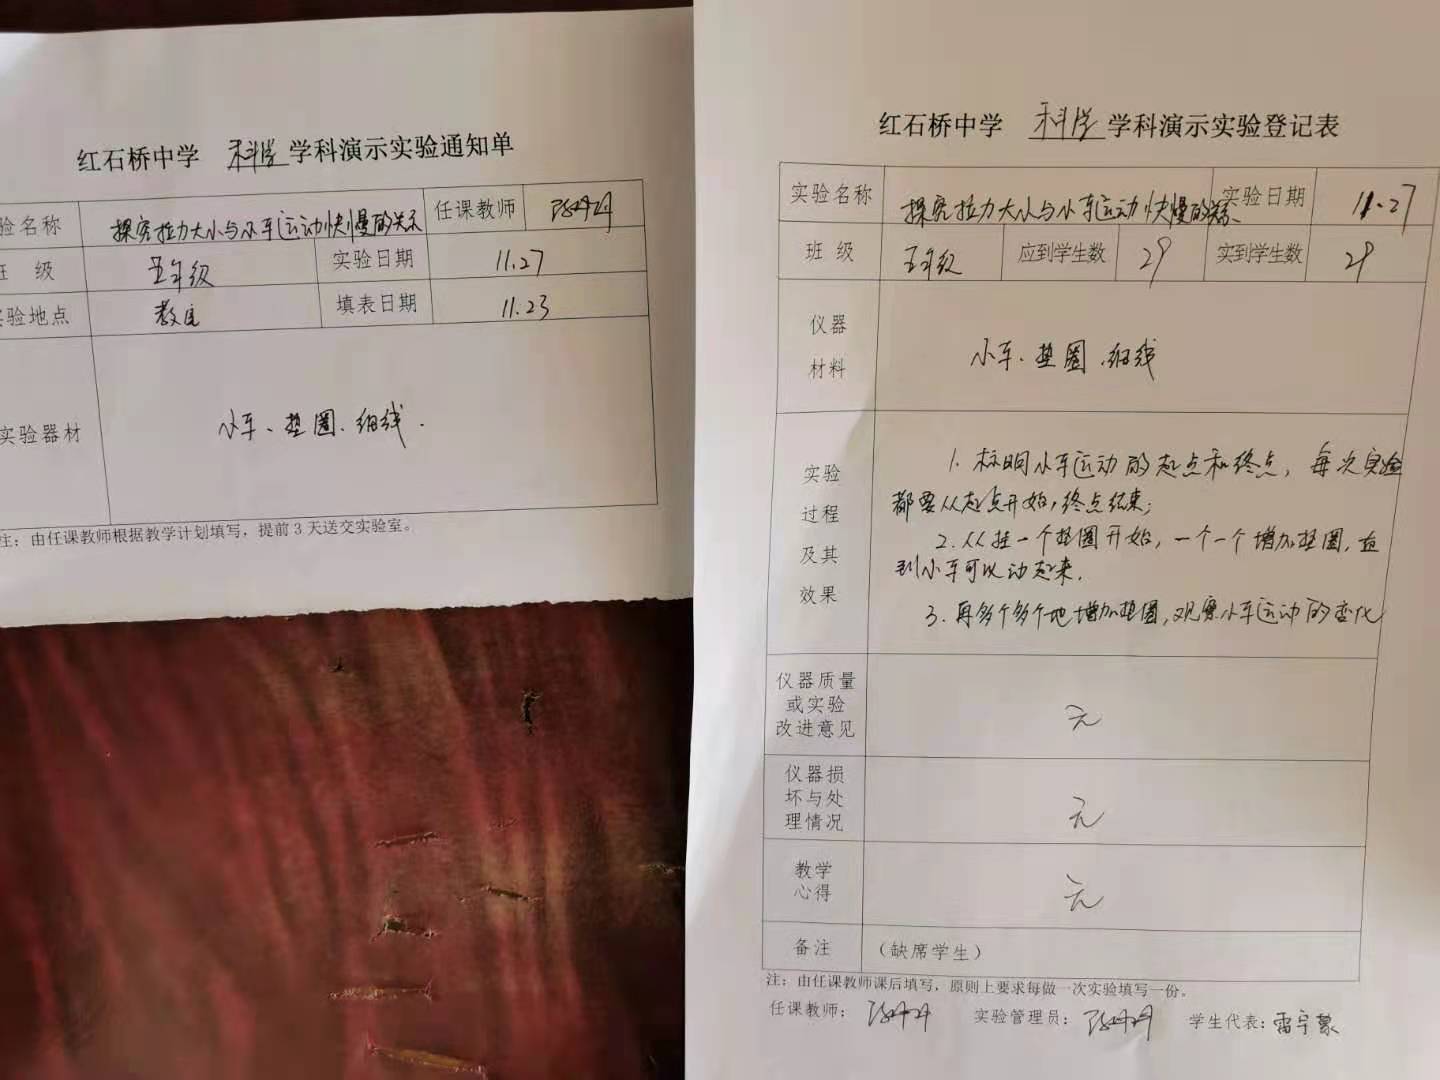 红石桥中学 科学 学科演示实验通知单
验名称 探究拉力大小与小车运动快慢的关系 任课教师
班 级 五年级 实验日期 11.27
实验地点 教室 填表日期 11.23
实验器材 小车、垫圈、细线.
注：由任课教师根据教学计划填写，提前3天送交实验室。
红石桥中学 科学 学科演示实验登记表
实验名称 探究拉力大小与小车运动快慢的关系 实验日期 11.27
班 级 五年级 应到学生数 29 实到学生数 29
仪器
材料
小车、垫圈、细线
实验
过程
及其
效果
1.标明小车运动的起点和终点，每次实验
都要从起点开始，终点结束；
2.从挂一个垫圈开始，一个一个增加垫圈，直
到小车可以动起来.
3.再多个多个地增加垫圈，观察小车运动的变化
仪器质量
或实验
改进意见
无
仪器损
坏与处
理情况
无
教学
心得
无
备注 （缺席学生）
注：由任课教师课后填写，原则上要求每做一次实验填写一份。
任课教师： 实验管理员： 学生代表：雷宇蒙